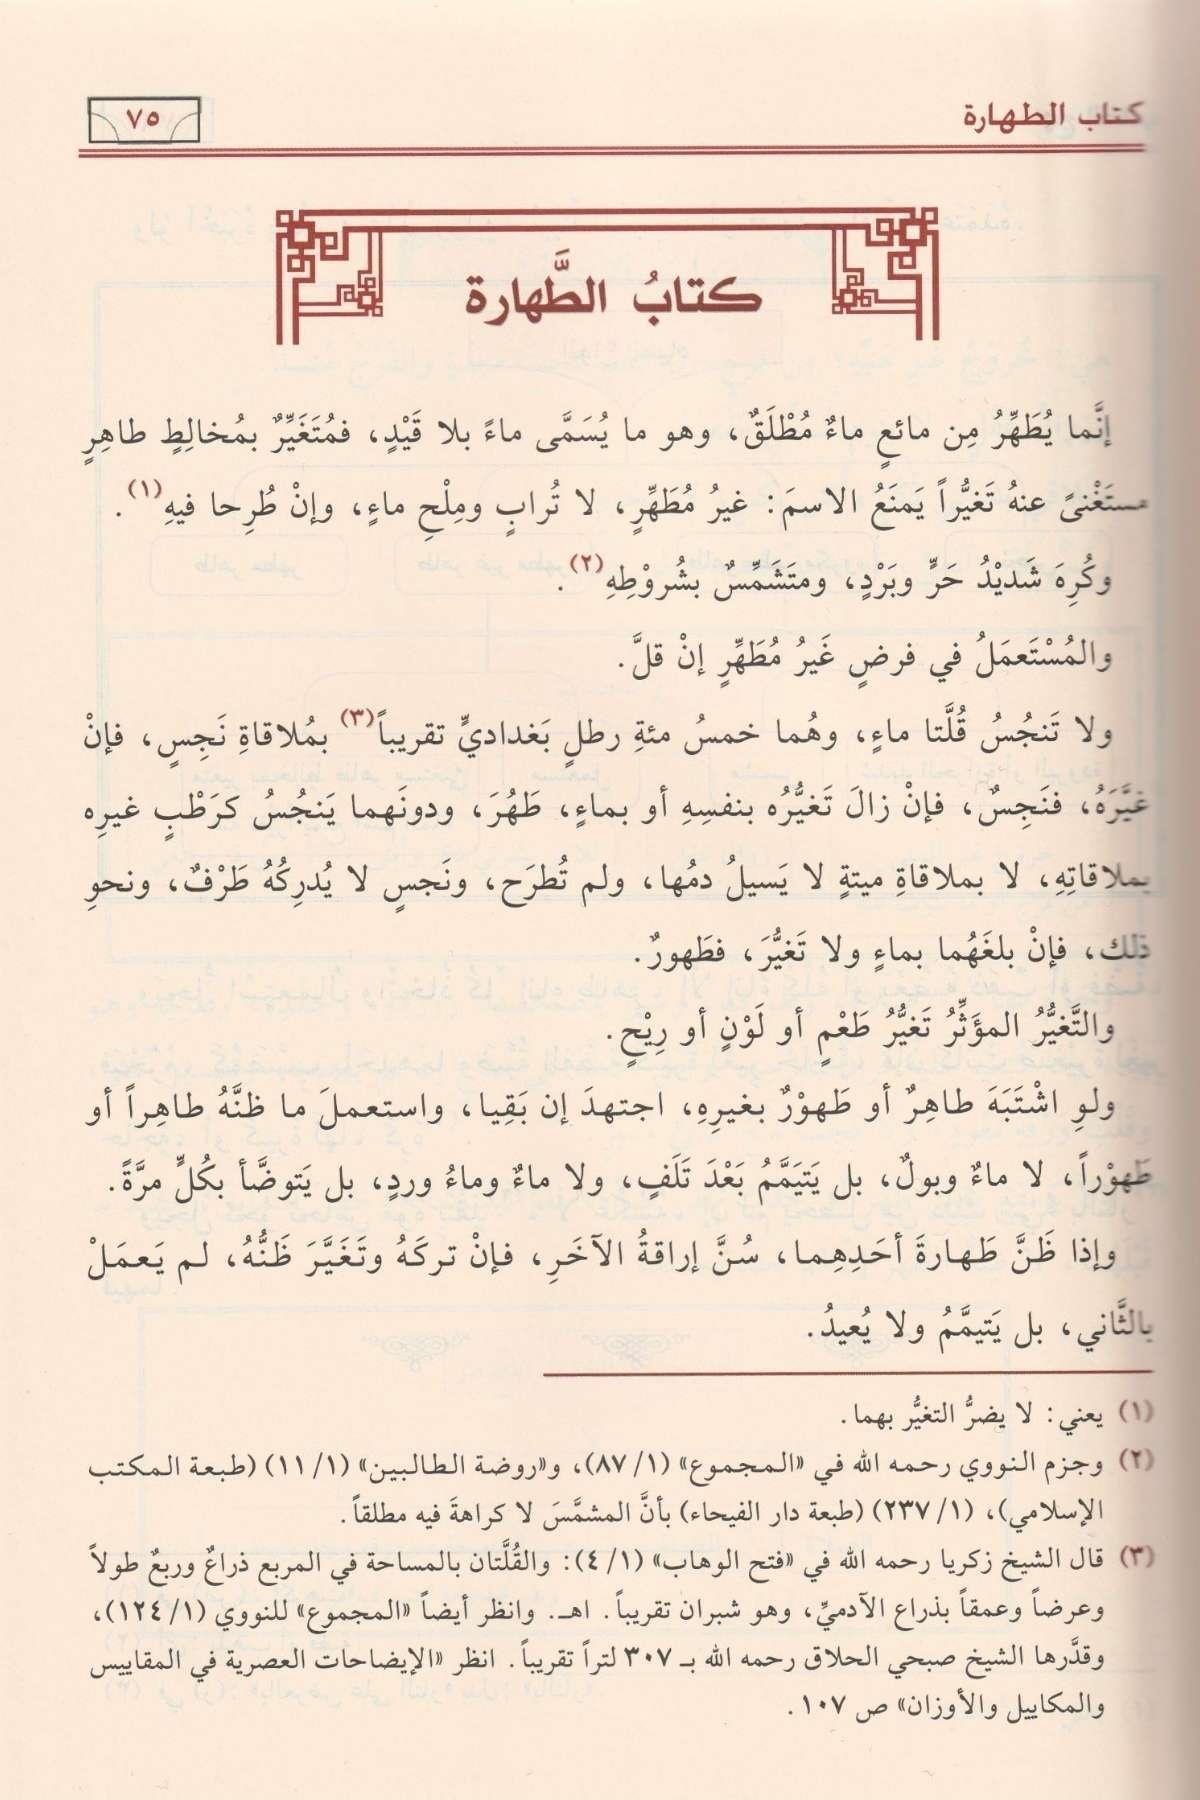 كتاب الطهارة
٧٥
كتابُ الطَّهارة
إنَّما يُطَهِّرُ مِن مائعٍ ماءٌ مُطْلَقٌ، وهو ما يُسَمَّى ماءً بلا قَيْدٍ، فمُتَغَيِّرٌ بمُخالِطٍ طاهِرٍ
مستَغْنىً عنهُ تَغيُّراً يَمنَعُ الاسمَ: غيرُ مُطَهِّرٍ، لا تُرابٍ ومِلْحِ ماءٍ، وإنْ طُرِحا فيهِ(١).
وكُرِهَ شَديْدُ حَرٍّ وبَرْدٍ، ومتَشَمِّسٌ بشُروْطِهِ(٢).
والمُسْتَعمَلُ في فرضٍ غَيرُ مُطَهِّرٍ إنْ قلَّ.
ولا تَنجُسُ قُلَّتا ماءٍ، وهُما خمسُ مئةِ رطلٍ بَغداديٍّ تقريباً(٣) بمُلاقاةِ نَجِسٍ، فإنْ
غيَّرَهُ، فنَجِسٌ، فإنْ زالَ تَغيُّرُه بنفسِهِ أو بماءٍ، طَهُرَ، ودونَهما يَنجُسُ كرَطْبٍ غيرِه
بملاقاتِهِ، لا بملاقاةِ ميتةٍ لا يَسيلُ دمُها، ولم تُطرَح، ونَجسٍ لا يُدرِكُهُ طَرْفٌ، ونحوِ
ذلك، فإنْ بلغَهُما بماءٍ ولا تَغيُّرَ، فطَهورٌ.
والتَّغيُّرُ المؤَثِّرُ تَغيُّرُ طَعْمٍ أو لَوْنٍ أو رِيْحٍ.
ولوِ اشْتَبَهَ طاهِرٌ أو طَهوْرٌ بغيرِهِ، اجتهدَ إن بَقِيا، واستعملَ ما ظنَّهُ طاهِراً أو
طَهوْراً، لا ماءٌ وبولٌ، بل يَتيَمَّمُ بَعْدَ تَلَفٍ، ولا ماءٌ وماءُ وردٍ، بل يَتوضَّأ بكُلٍّ مرَّةً.
وإذا ظَنَّ طَهارةَ أحَدِهِما، سُنَّ إراقةُ الآخَرِ، فإنْ تركَهُ وتَغَيَّرَ ظَنُّهُ، لم يَعمَلْ
بالثَّاني، بل يَتيمَّمُ ولا يُعيدُ.
(١) يعني: لا يضرُّ التغيُّر بهما.
(٢) وجزم النووي رحمه الله في «المجموع» (١/ ٨٧)، و«روضة الطالبين» (١/ ١١) (طبعة المكتب
الإسلامي)، (١/ ٢٣٧) (طبعة دار الفيحاء) بأنَّ المشمَّسَ لا كراهةَ فيه مطلقاً.
(٣) قال الشيخ زكريا رحمه الله في «فتح الوهاب» (١/ ٤): والقُلَّتان بالمساحة في المربع ذراعٌ وربعٌ طولاً
وعرضاً وعمقاً بذراع الآدميِّ، وهو شبران تقريباً. اهـ. وانظر أيضاً «المجموع» للنووي (١/ ١٢٤)،
وقدَّرها الشيخ صبحي الحلاق رحمه الله بـ ٣٠٧ لتراً تقريباً. انظر «الإيضاحات العصرية في المقاييس
والمكاييل والأوزان» ص ١٠٧.